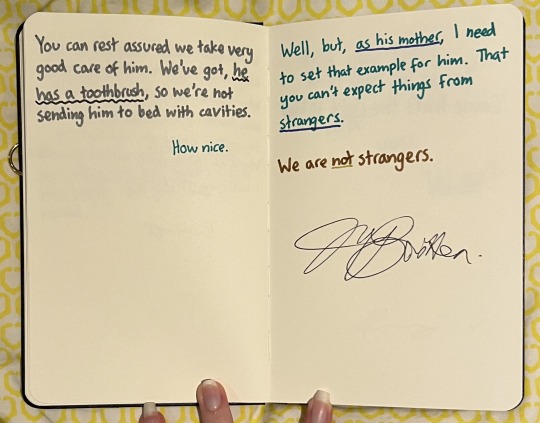 You can rest assured we take very
good care of him. We've got, he
has a toothbrush, so we're not
sending him to bed with cavities.
How nice.
Well, but, as his mother, I need
to set that example for him. That
you can't expect things from
strangers.
We are not strangers.